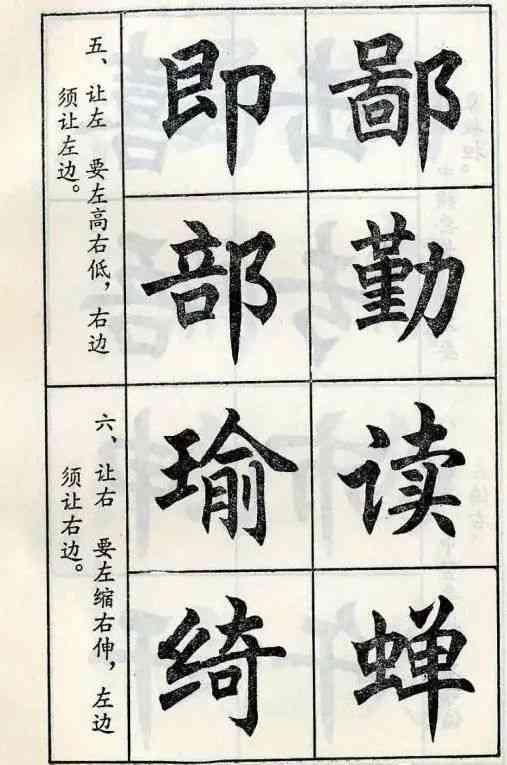 五、让左 要左高右低，右边
须让左边。
鄙 即
勤 部
六、让右 要左缩右伸，左边
须让右边。
读 瑜
蝉 绮